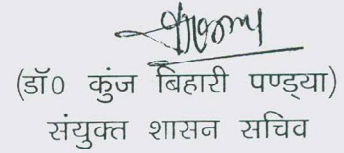 (डॉ0 कुंज बिहारी पण्ड्या)
संयुक्त शासन सचिव